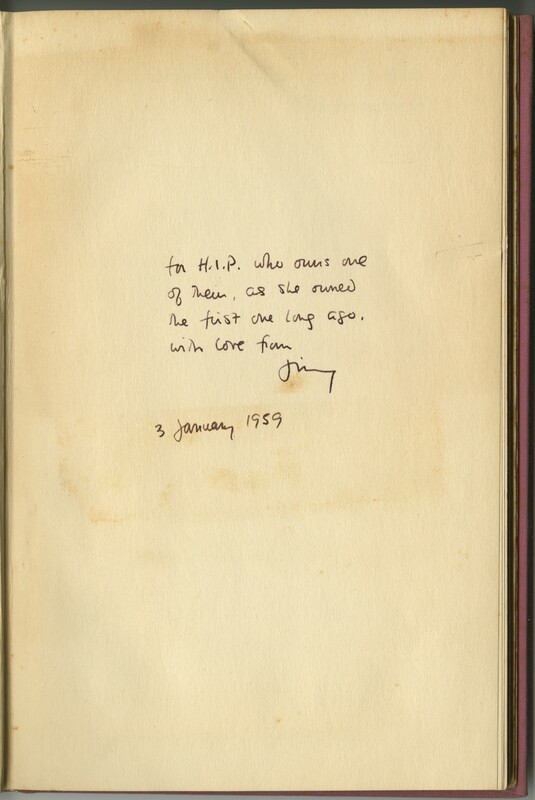 for H.I.P. who owns one
of them, as she owned
the first one long ago.
with love from
Jimmy
3 January 1959